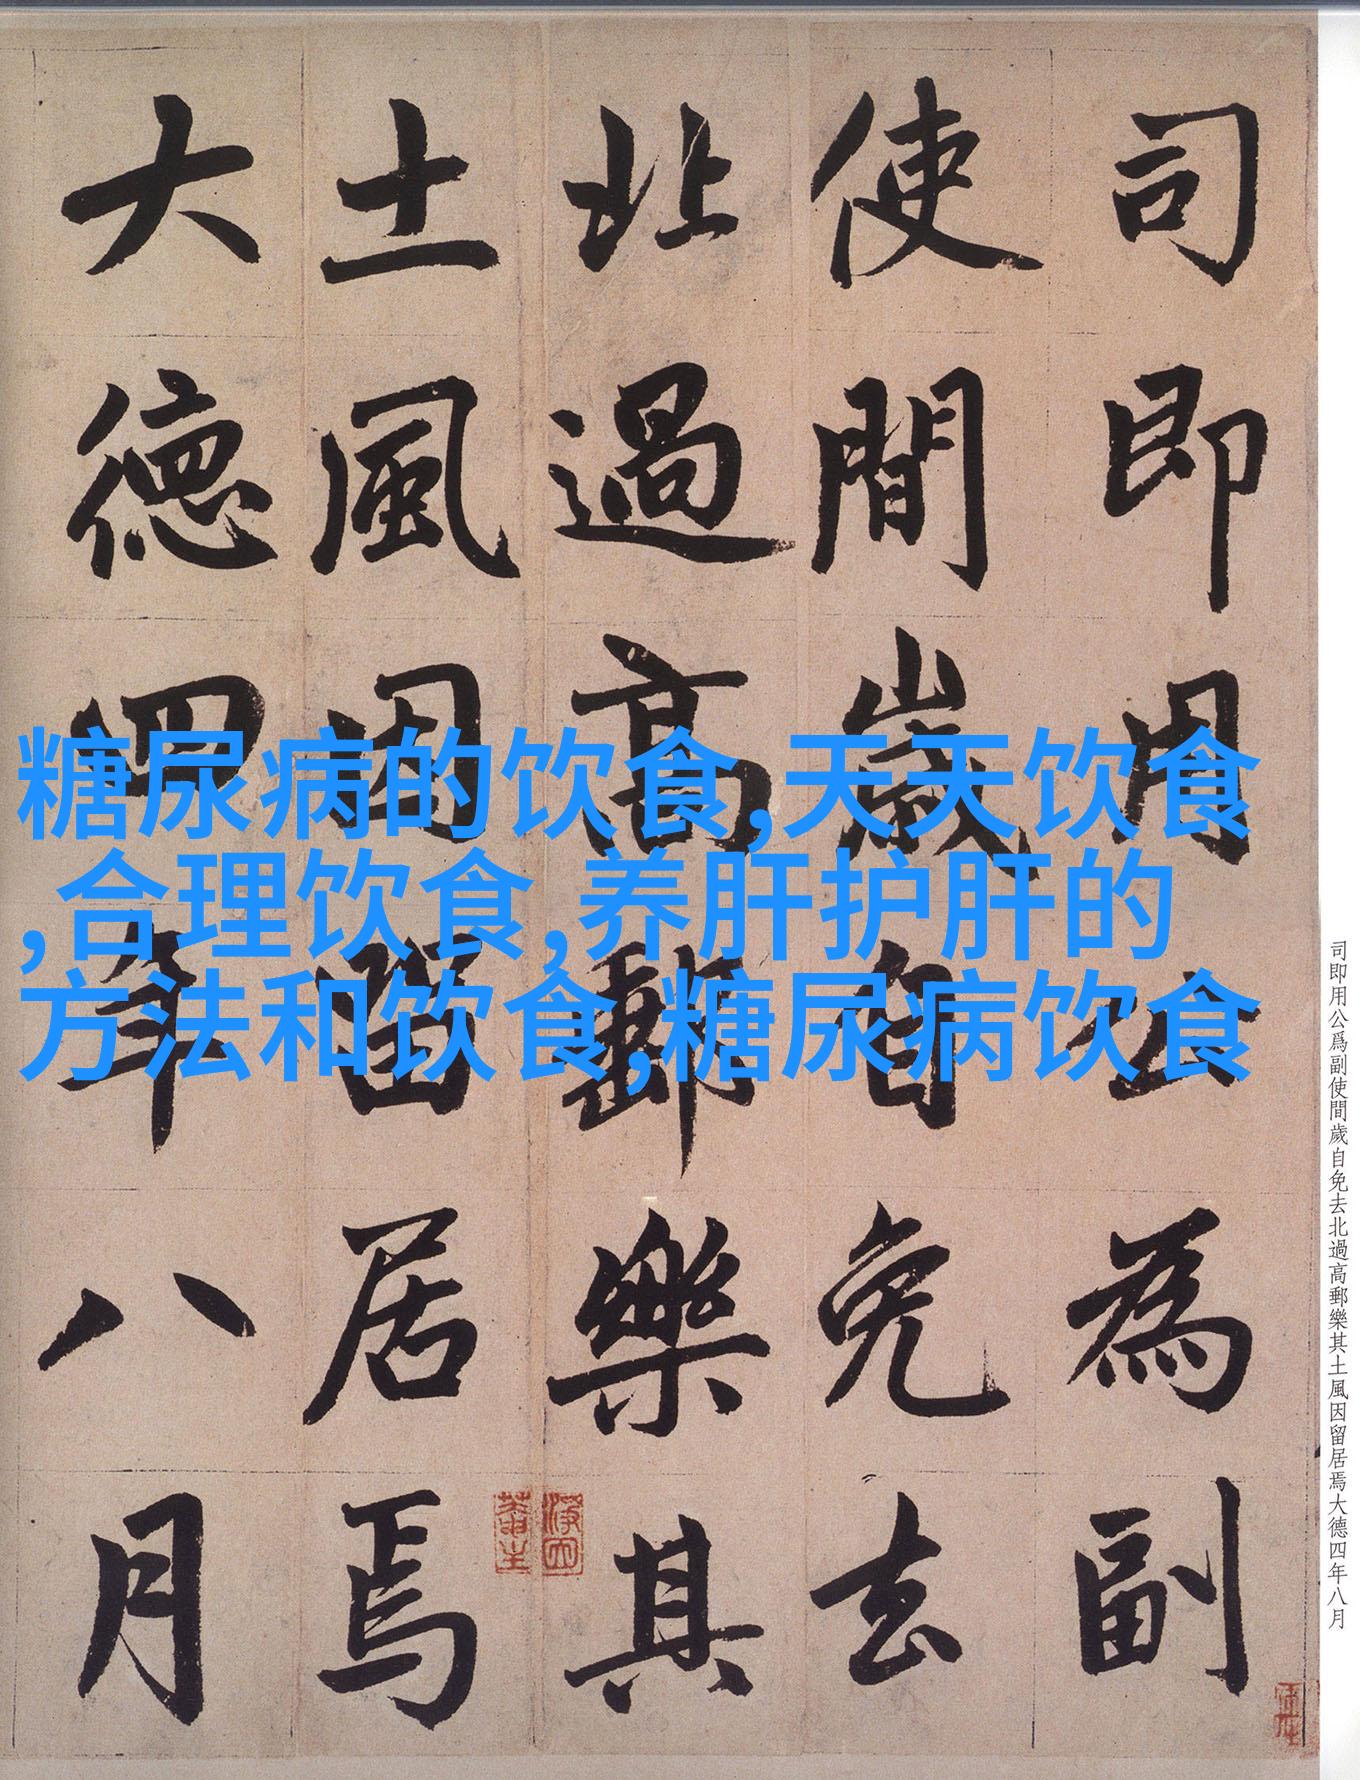 司即用公為副
使間歲自免去
北過高郵樂其
土風因留居焉
大德四年八月
糖尿病的饮食,天天饮食
,合理饮食,养肝护肝的
方法和饮食,糖尿病饮食
司即用公爲副使間歲自免去北過高郵樂其土風因留居焉大德四年八月